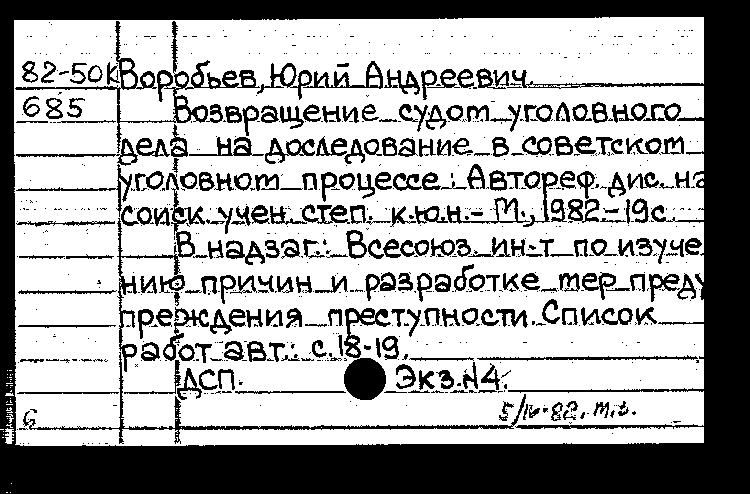 82-50К Воробьев, Юрий Андреевич.
685 Возвращение судом уголовного
дела на доследование в советском
уголовном процессе: Автореф. дис. на
соиск. учен. степ. к.ю.н. - М., 1982 - 19с
В надзаг.: Всесоюз. ин-т по изуче
нию причин и разработке мер преду
преждения преступности. Список
работ авт.: с. 18-19.
ДСП. Экз. N4.